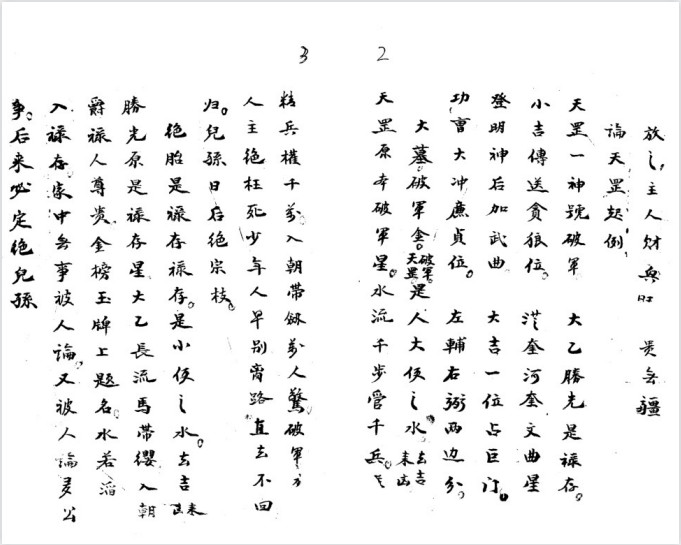 2
放之主人財興旺 贵无疆
論天罡起例
天罡一神號破軍 太乙勝光是祿存。
小吉傳送貪狼位。 奎河奎文曲星
登明神后加武曲 大吉一位占巨门。
功曹大冲廉貞位。 左輔右弼两边分。
大墓破軍金。破軍。天罡是人大便之水。去吉来凶
天罡原本破軍星。水流千步管千兵。
3
精兵權千萬入朝帶劔萬人驚破軍方
人主绝枉死少年人早别膏路直去不回
归。兒孫日后绝宗枝。
绝胎是祿存祿存。是小便之水。去吉来凶
勝光原是祿存星大乙長流馬帶纓入朝
爵祿人尊贵金榜玉牌上题名。水若
入祿存家中无事被人論。又被人論多公
事。后来必定绝兒孫